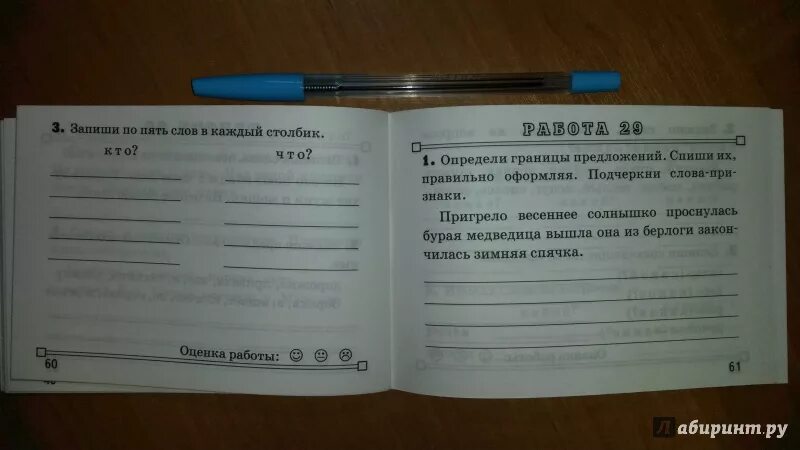 3. Запиши по пять слов в каждый столбик.
кто? что?
Оценка работы:
60
РАБОТА 29
1. Определи границы предложений. Спиши их,
правильно оформляя. Подчеркни слова-при-
знаки.
Пригрело весеннее солнышко проснулась
бурая медведица вышла она из берлоги закон-
чилась зимняя спячка.
61
Лабиринт.ру